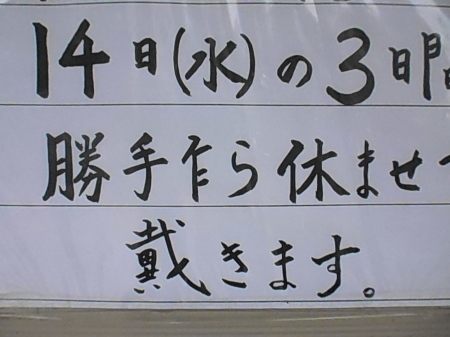 14日(水)の3日間
勝手乍ら休ませて
戴きます。